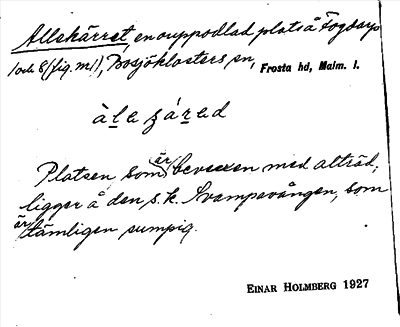 Allekärret, en ouppodlad plats å Fogdarp
1 och 8 (fig. m 1), Bosjöklosters sn, Frosta hd, Malm. l.
àla ʒárad
Platsen som är bevuxen med alträd,
ligger å den s.k. Svampavången, som
är tämligen sumpig.
EINAR HOLMBERG 1927